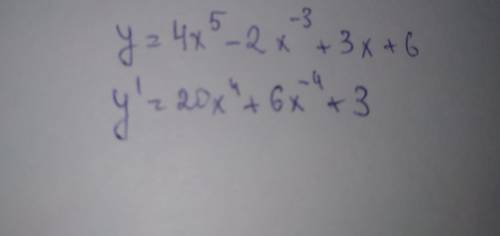 y = 4x⁵ - 2x⁻³ + 3x + 6
y' = 20x⁴ + 6x⁻⁴ + 3